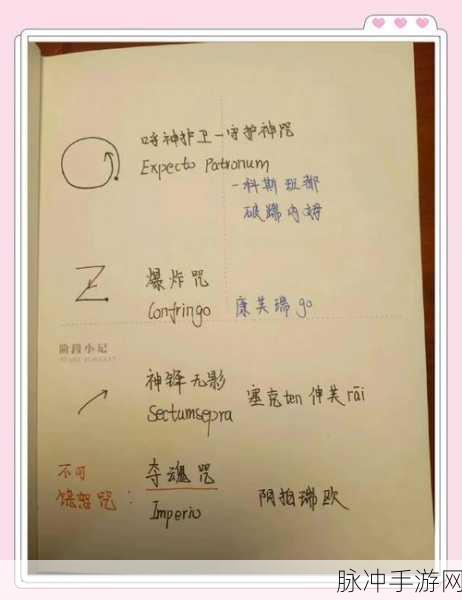 呼神护卫-守护神咒
Expecto Patronum
-科斯班都
破踹内姆
爆炸咒
Confringo 康芙瑞go
阶段小记
神锋无影
Sectumsepra 塞克ten伸芙rāi
不可
饶恕咒：
夺魂咒
Imperio 阴拍瑞欧
脉冲手游网